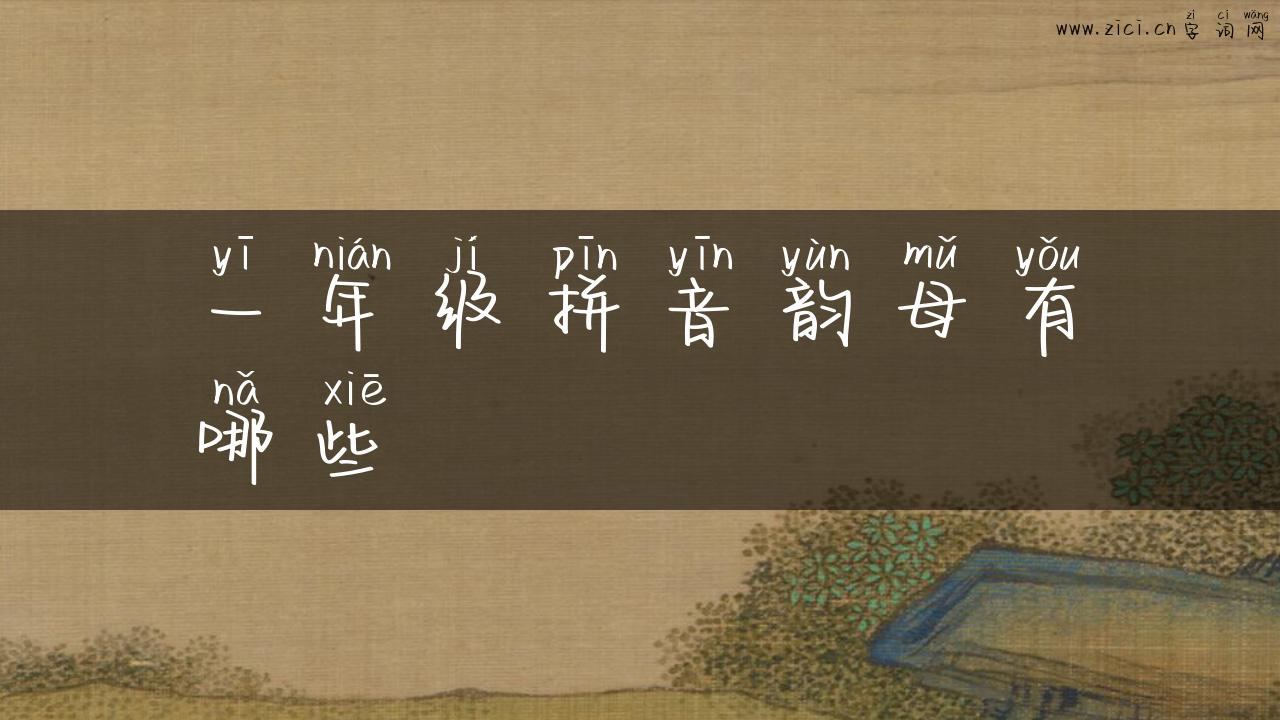 zì cí wǎng
www.zici.cn 字 词 网
yī nián jí pīn yīn yùn mǔ yǒu
一 年 级 拼 音 韵 母 有
nǎ xiē
哪 些